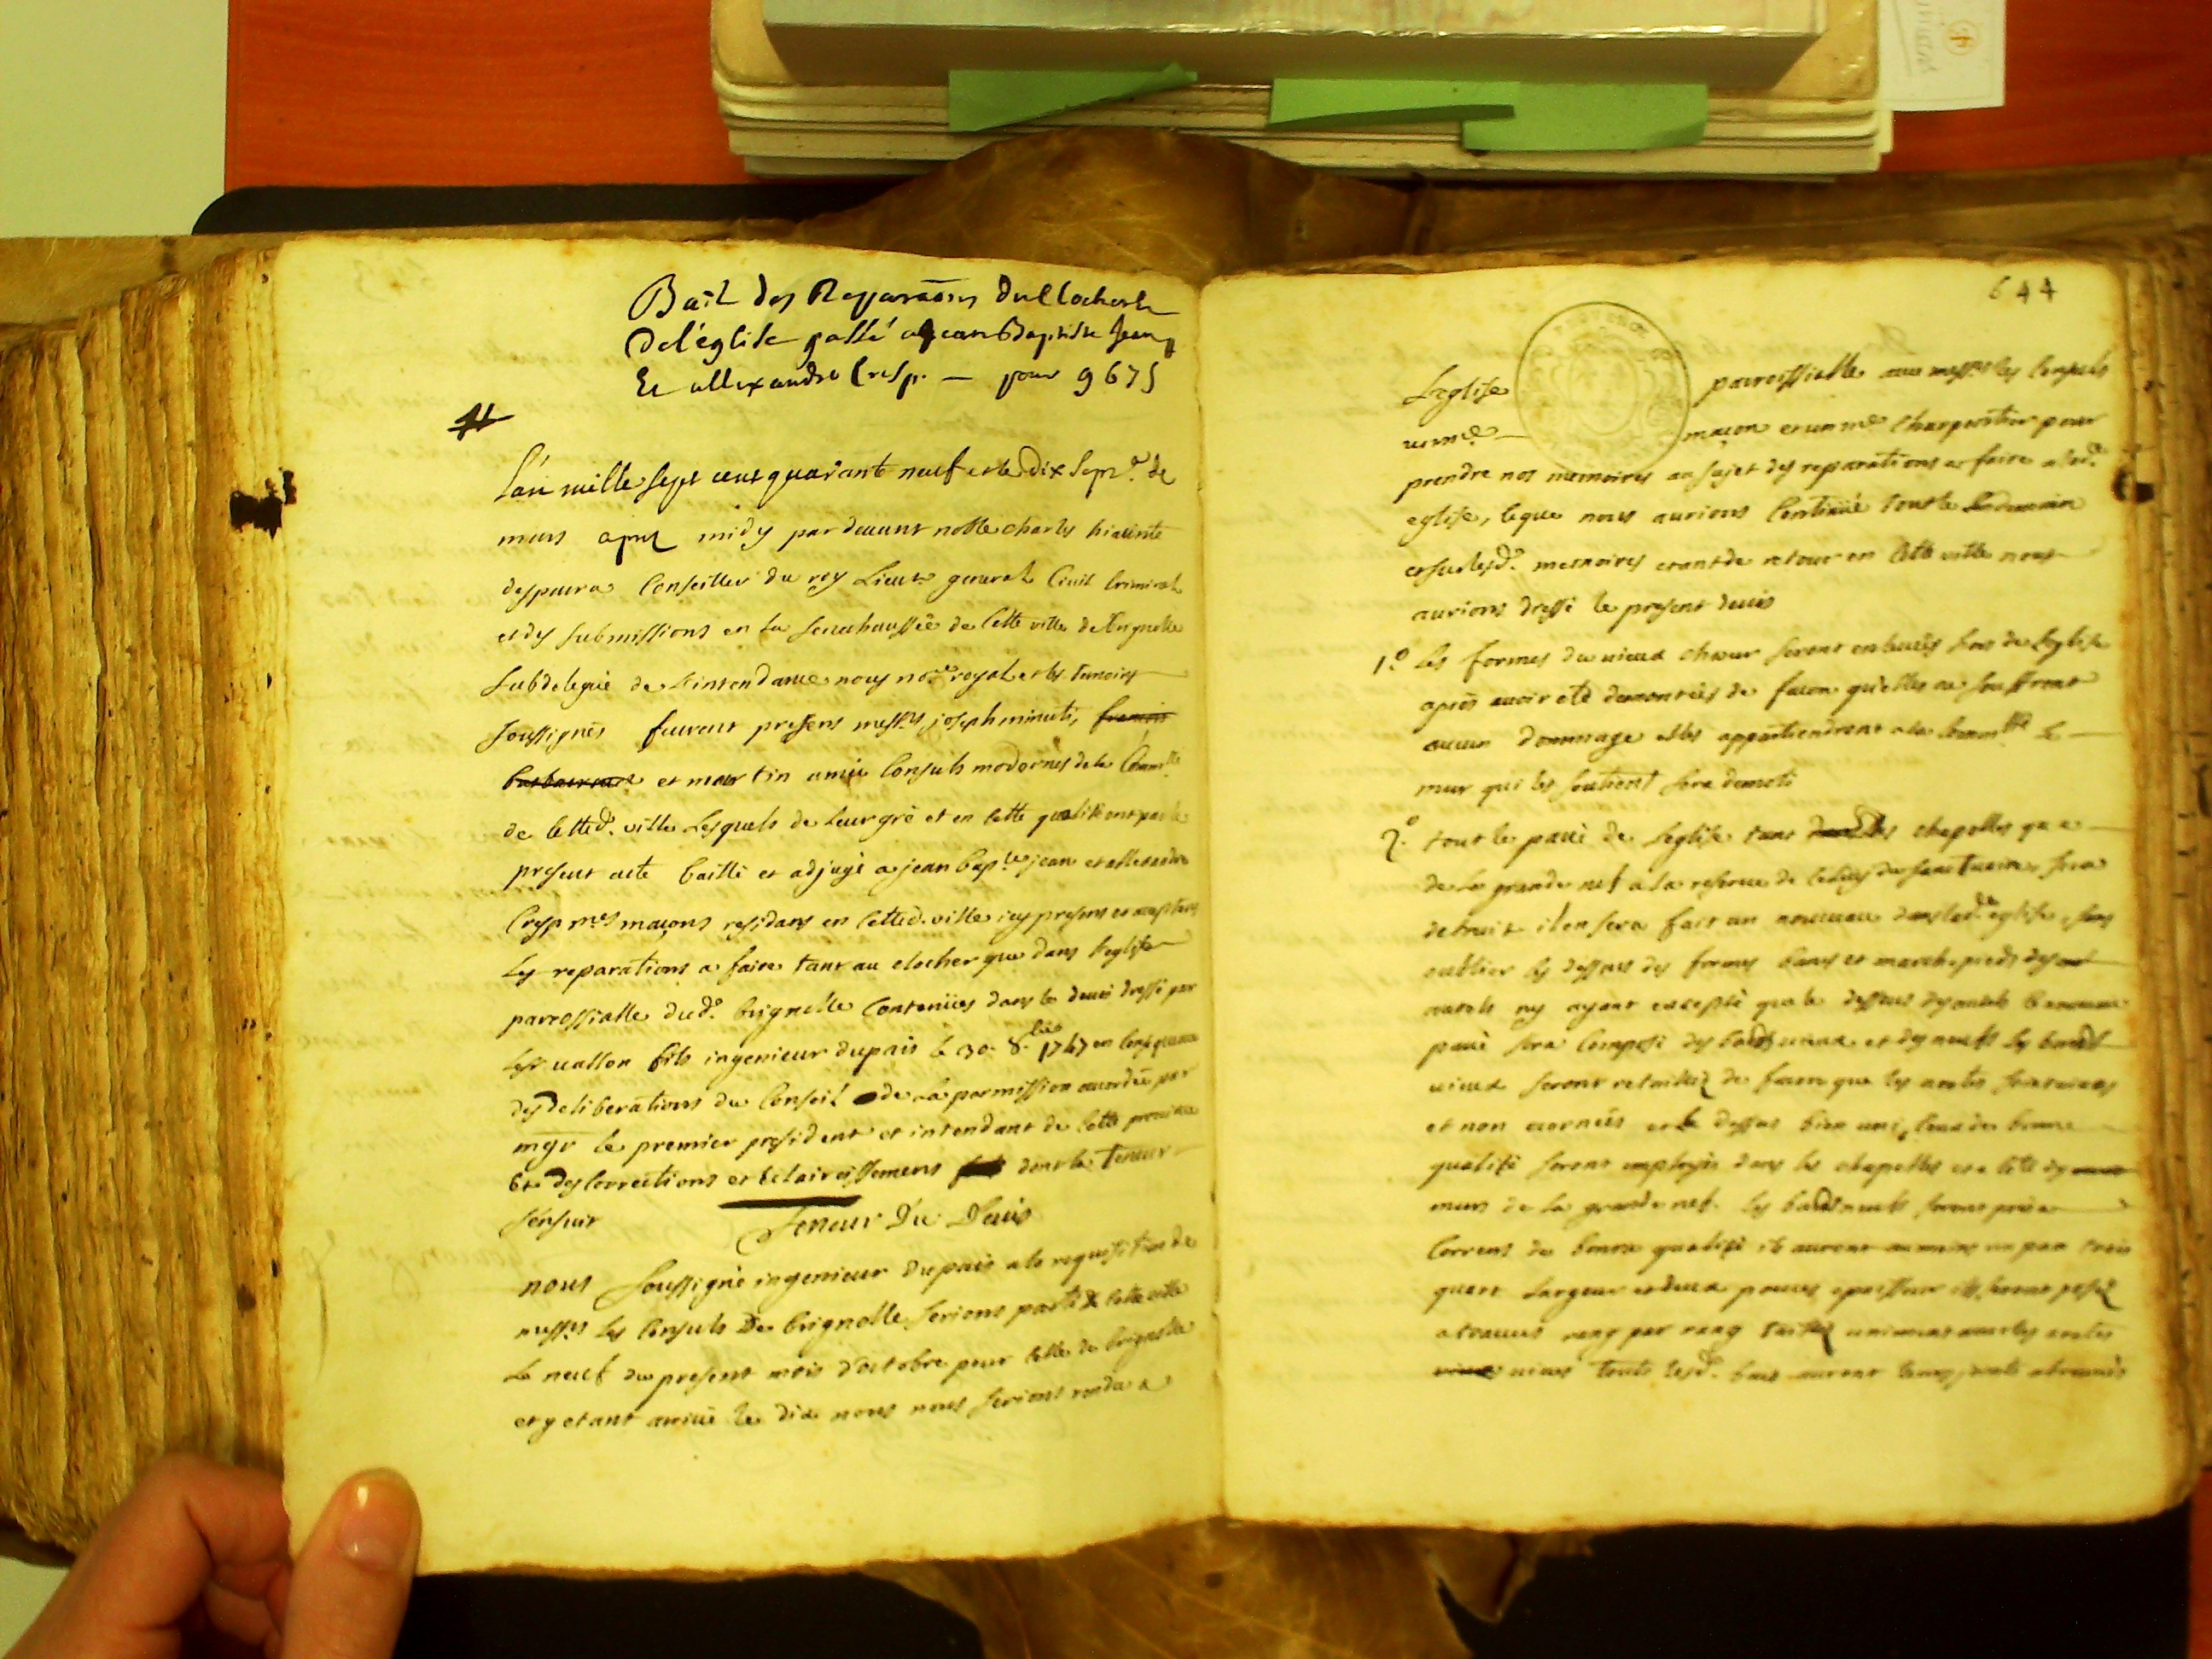 Bail des Reparaõns du Clocher &
De l'église passé a jean Baptiste Jean
Et allexandre Cresp. — pour 9675
L'an mille sept cent quarante neuf et le dix sept.e de
mars apres midy par devant noble charles hiacinte
despaura Conseiller du roy Lieut. general Civil Criminel
et des submissions en la senechaussée de Cette ville de Brignolle
subdelegué de L'intendance nous no.re royal et les temoins
soussignés furent presens mess.rs joseph minuti, francois
et martin amic Consuls modernes de la Comm.té
de cette d.e ville Lesquels de Leur gré et en cette qualité ont par le
present acte bailli et adjugé a jean bap.te jean et allexandre
Cresp m.es maçons residans en cette d. ville icy presens et acceptans
Les reparations a faire tant au clocher que dans l'eglise
parroissialle dud.e brignolle Contenües dans le devis dressé par
Le s.r vallon fils ingenieur du païs le 30. 8.bre 1747 en consequance
des deliberations du Conseil de La permission accordée par
mgr le premier president et intendant de cette province
Et des Corrections et Eclaircissemens dont la teneur
s'ensuit
Teneur Du Devis
nous soussigné ingenieur du païs a la requisition de
mess.rs Les Consuls De brignolle serions parti de cette ville
Le neuf du present mois d'octobre pour celle de brignolle
et y etant arrivé le dix nous nous serions rendu a
644
L'eglise parroissialle avec mess.rs les Consuls
un m.e maçon et un m.e Charpentier pour
prendre nos memoires au sujet des reparations a faire a lad.e
eglise, le que nous aurions Continüé tout le Lendemain
et sur lesd.s memoires etant de retour en Cette ville nous
aurions dressé le present devis
1.o Les formes du vieux chœur seront enlevées hors de L'eglise
aprés avoir eté demontées de facon qu'elles ne souffrent
aucun dommage elles appartiendront a la Comm.té Le
mur qui les soutient sera demoli
2.o tout le pavé de L'eglise tant des chapelles que
de La grande nef a la reserve de celuy du sanctuaire sera
detruit il en sera fait un nouveau dans lad.e eglise, sans
oublier les dessous des formes bancs et marchepieds des
autels ny ayant excepté que le dessous des autels Ce nouveau
pavé sera Composé des bards vieux et des neufs Les bards
vieux seront retaillez de facon que les arrêtes soient vives
et non ecornées et le dessus bien uni, Ceux de bonne
qualité seront employés dans les chapelles et a côté des
murs de La grande nef. Les bards neufs seront pris a
Correns de bonne qualité ils auront au moins un pan trois
quart Largeur et deux pouces epaisseur ils seront posés
a travers rang par rang taillez uniment avec les arrêtes
vives touts lesd.s bars auront leurs joints abreuvés